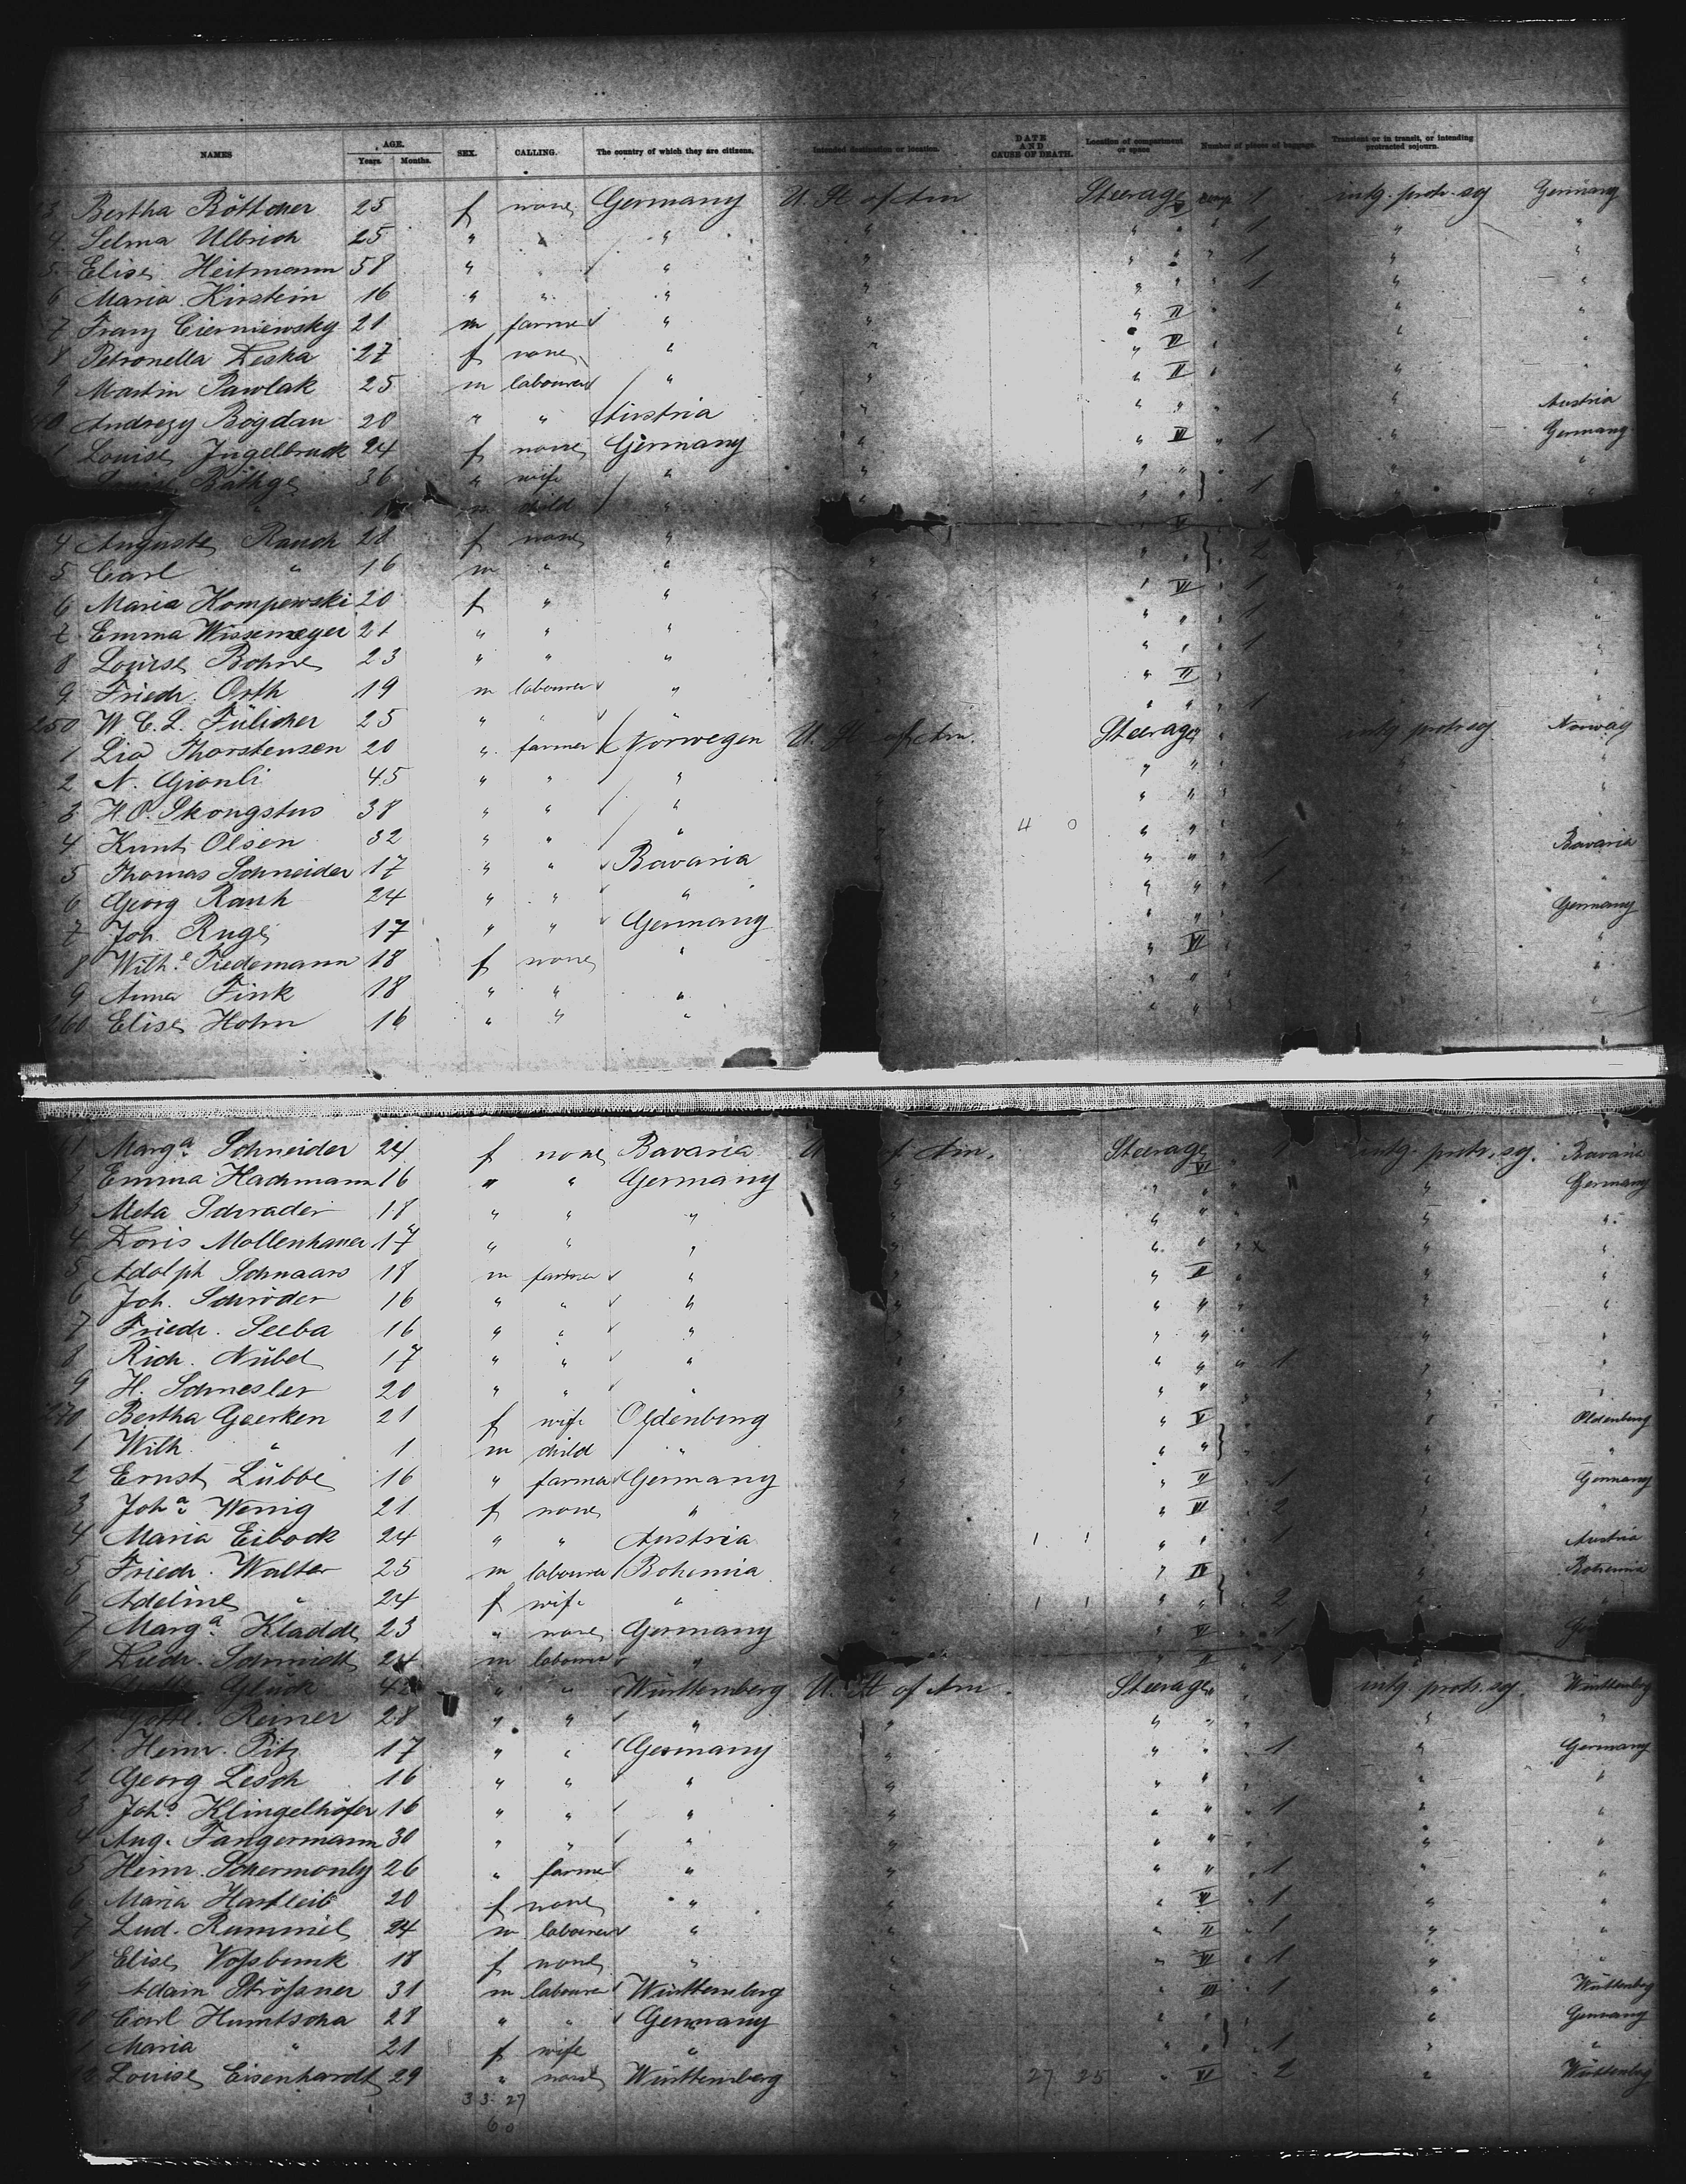 NAMES AGE. Years. Months. SEX. CALLING. The country of which they are citizens. Intended destination or location. DATE AND CAUSE OF DEATH. Location of compartment or space Number of pieces of baggage. Transient or in transit, or intending protracted sojourn.
3 Bertha Böttcher 25 f none Germany U. St of Am Steerage 1 intg. protr. soj Germany
4 Selma Ulbrich 25 " " " " " " 1 " "
5 Elise Heitmann 58 " " " " " " 1 " "
6 Maria Kirstein 16 " " " " " " 1 " "
7 Franz Cierniewsky 21 m farmer " " " II " " "
8 Petronella Deska 27 f none " " " VI " " "
9 Martin Pawlak 25 m labourer " " " II " "
Andrezy Bogdan 20 " " Austria " " " " " Austria
1 Louise Jugelbruck 24 f none Germany " " VI " 1 " Germany
Bäthge 36 " wife " " " 1 " "
" m child " " "
4 Auguste Rauch 28 f none " V
5 Carl " 16 m " " " " " 2
6 Maria Kompewski 20 f " " " VI " 1 " "
7 Emma Wissemeyer 21 " " " " " " 1 " "
8 Louise Bohne 23 " " " " " " 1 " "
9 Friedr. Orth 19 m labourer " " " II " " "
250 W. C. L. Fülicher 25 " " " " " " 1 "
1 Lia Thorstensen 20 " farmer Norwegen U. St of Am. Steerage " intg protr soj Norway
2 N. Gionli 45 " " " " " " " "
3 H. O. Skongstus 38 " " " " " " "
4 Knut Olsen 32 " " " 4 0 " " "
5 Thomas Schneider 17 " " Bavaria " " " 1 Bavaria
6 Georg Rauh 24 " " " " " " 1 "
7 Joh. Ruge 17 " " Germany " " Germany
8 Wilh.e Tiedemann 18 f none " " VI "
9 Anna Fink 18 " " " " " "
260 Elise Hohn 16 " " " " " "
1 Marg.a Schneider 24 f none Bavaria U of Am. Steerage VI " 1 intg. protr. soj. Bavaria
2 Emma Hachmann 16 " " Germany " " " " " Germany
3 Meta Schrader 18 " " " " " " " " "
4 Doris Mollenhauer 17 " " " " " " x " "
5 Adolph Schnaars 18 m farmer " " " II " " "
6 Joh. Schröder 16 " " " " " " " " "
7 Friedr. Seeba 16 " " " " " " " " "
8 Rich. Nübel 17 " " " " " " " 1 " "
9 H. Schmesler 20 " " " " " " " " "
270 Bertha Geerken 21 f wife Oldenburg " " V " " Oldenburg
1 Wilh. " 1 m child " " " " " " "
2 Ernst Lübbe 16 " farmer Germany " " II " 1 " Germany
3 Joh.a Wenig 21 f none " " " VI " 2 " "
4 Maria Eibock 24 " " Austria " 1 1 " " " 1 " Austria
5 Friedr. Walter 25 m labourer Bohemia " " IV " " Bohemia
6 Adeline " 24 f wife " " 1 1 " " " 2 " "
7 Marg.a Kladde 23 " none Germany " " VI " 1
Diedr. Schmidt 24 m labourer " " II
Glück " " Württemberg U. St of Am. Steerage " intg. protr. soj. Württemberg
Gottl. Reiner 28 " " " " " " " " "
1 Heinr. Pitz 17 " " Germany " " " " 1 " Germany
2 Georg Lesch 16 " " " " " " " "
3 Joh.s Klingelhöfer 16 " " " " " " " 1 " "
4 Aug. Tangermann 30 " " " " " " " " "
5 Heinr. Schermonly 26 " farmer " " " " " 1 " "
6 Maria Hartleib 20 f none " " " VI " 1 " "
7 Lud. Rummel 24 m labourer " " " II " 1 " "
8 Elise Voßbrink 18 f none " " " VI " 1 " "
9 Adam Strößner 31 m labourer Württemberg " " III " 1 " Württemberg
Carl Humtscha 28 " " Germany " " " " " Germany
1 Maria " 21 f wife " " " " " 1 " "
Louise Eisenhardt 29 " none Württemberg " 27 25 " VI " 2 " Württemberg
33 27
60